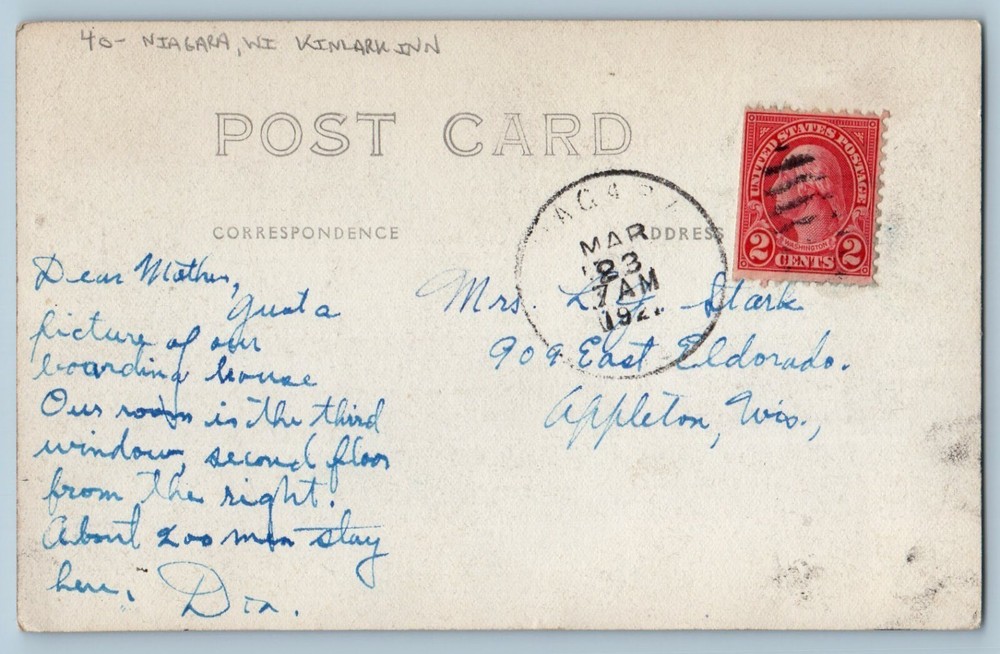 40- NIAGARA, WI KIMLARK INN
POST CARD
UNITED STATES POSTAGE
WASHINGTON
2 CENTS 2
MAR
23
7 AM
192
CORRESPONDENCE
ADDRESS
Dear Mother,
Just a
picture of our
boarding house
Our room is the third
window, second floor
from the right.
About 200 men stay
here.
Mrs. Stark
909 East Eldorado.
Appleton, Wis.,